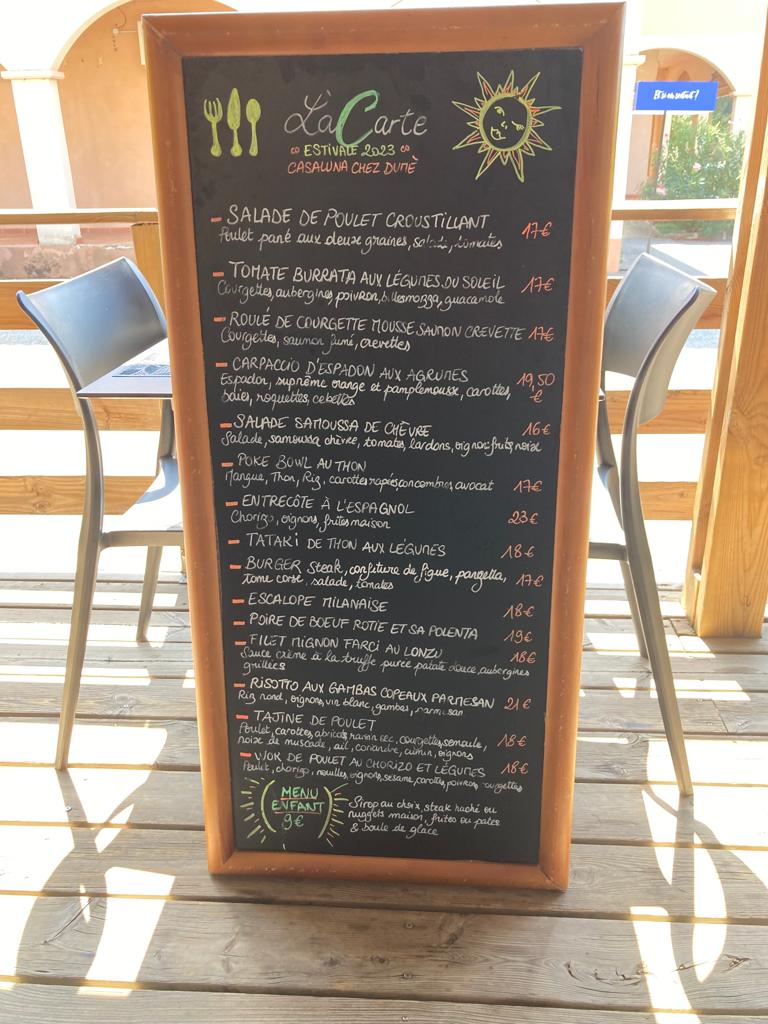 Là Carte
ESTIVALE 2023
CASALUNA CHEZ DUMÈ
Et si on sortait ?
- SALADE DE POULET CROUSTILLANT 17€
Poulet pané aux deux graines, salade, tomates
- TOMATE BURRATA AUX LÉGUMES DU SOLEIL 17€
Courgettes, aubergines, poivron, billes mozza, guacamole
- ROULÉ DE COURGETTE MOUSSE SAUMON CREVETTE 17€
Courgettes, saumon fumé, crevettes
- CARPACCIO D'ESPADON AUX AGRUMES 19,50 €
Espadon, suprême orange et pamplemousse, carottes,
baies, roquettes, cebettes
- SALADE SAMOUSSA DE CHÈVRE 16€
Salade, samoussa chèvre, tomates, lardons, oignons frits, noix
- POKE BOWL AU THON
Mangue, Thon, Riz, carottes rapées, concombres, avocat 17€
- ENTRECÔTE À L'ESPAGNOL 23€
Chorizo, oignons, frites maison
- TATAKI DE THON AUX LÉGUMES 18€
- BURGER Steak, confiture de figue, panzetta,
tome corse, salade, tomates 17€
- ESCALOPE MILANAISE 18€
- POIRE DE BOEUF ROTIE ET SA POLENTA 19€
- FILET MIGNON FARCI AU LONZU 18€
Sauce crème à la truffe purée patate douce, aubergines
grillées
- RISOTTO AUX GAMBAS COPEAUX PARMESAN 21€
Riz rond, oignons, vin blanc, gambas, parmesan
- TAJINE DE POULET
Poulet, carottes, abricots, raisin sec, courgettes, semoule, 18€
noix de muscade, ail, coriandre, cumin, oignons
- WOK DE POULET AU CHORIZO ET LÉGUMES 18€
Poulet, chorizo, nouilles, oignons, sesame, carottes, poivrons, courgettes
MENU
ENFANT
9€
Sirop au choix, steak haché ou
nuggets maison, frites ou pates
& boule de glace